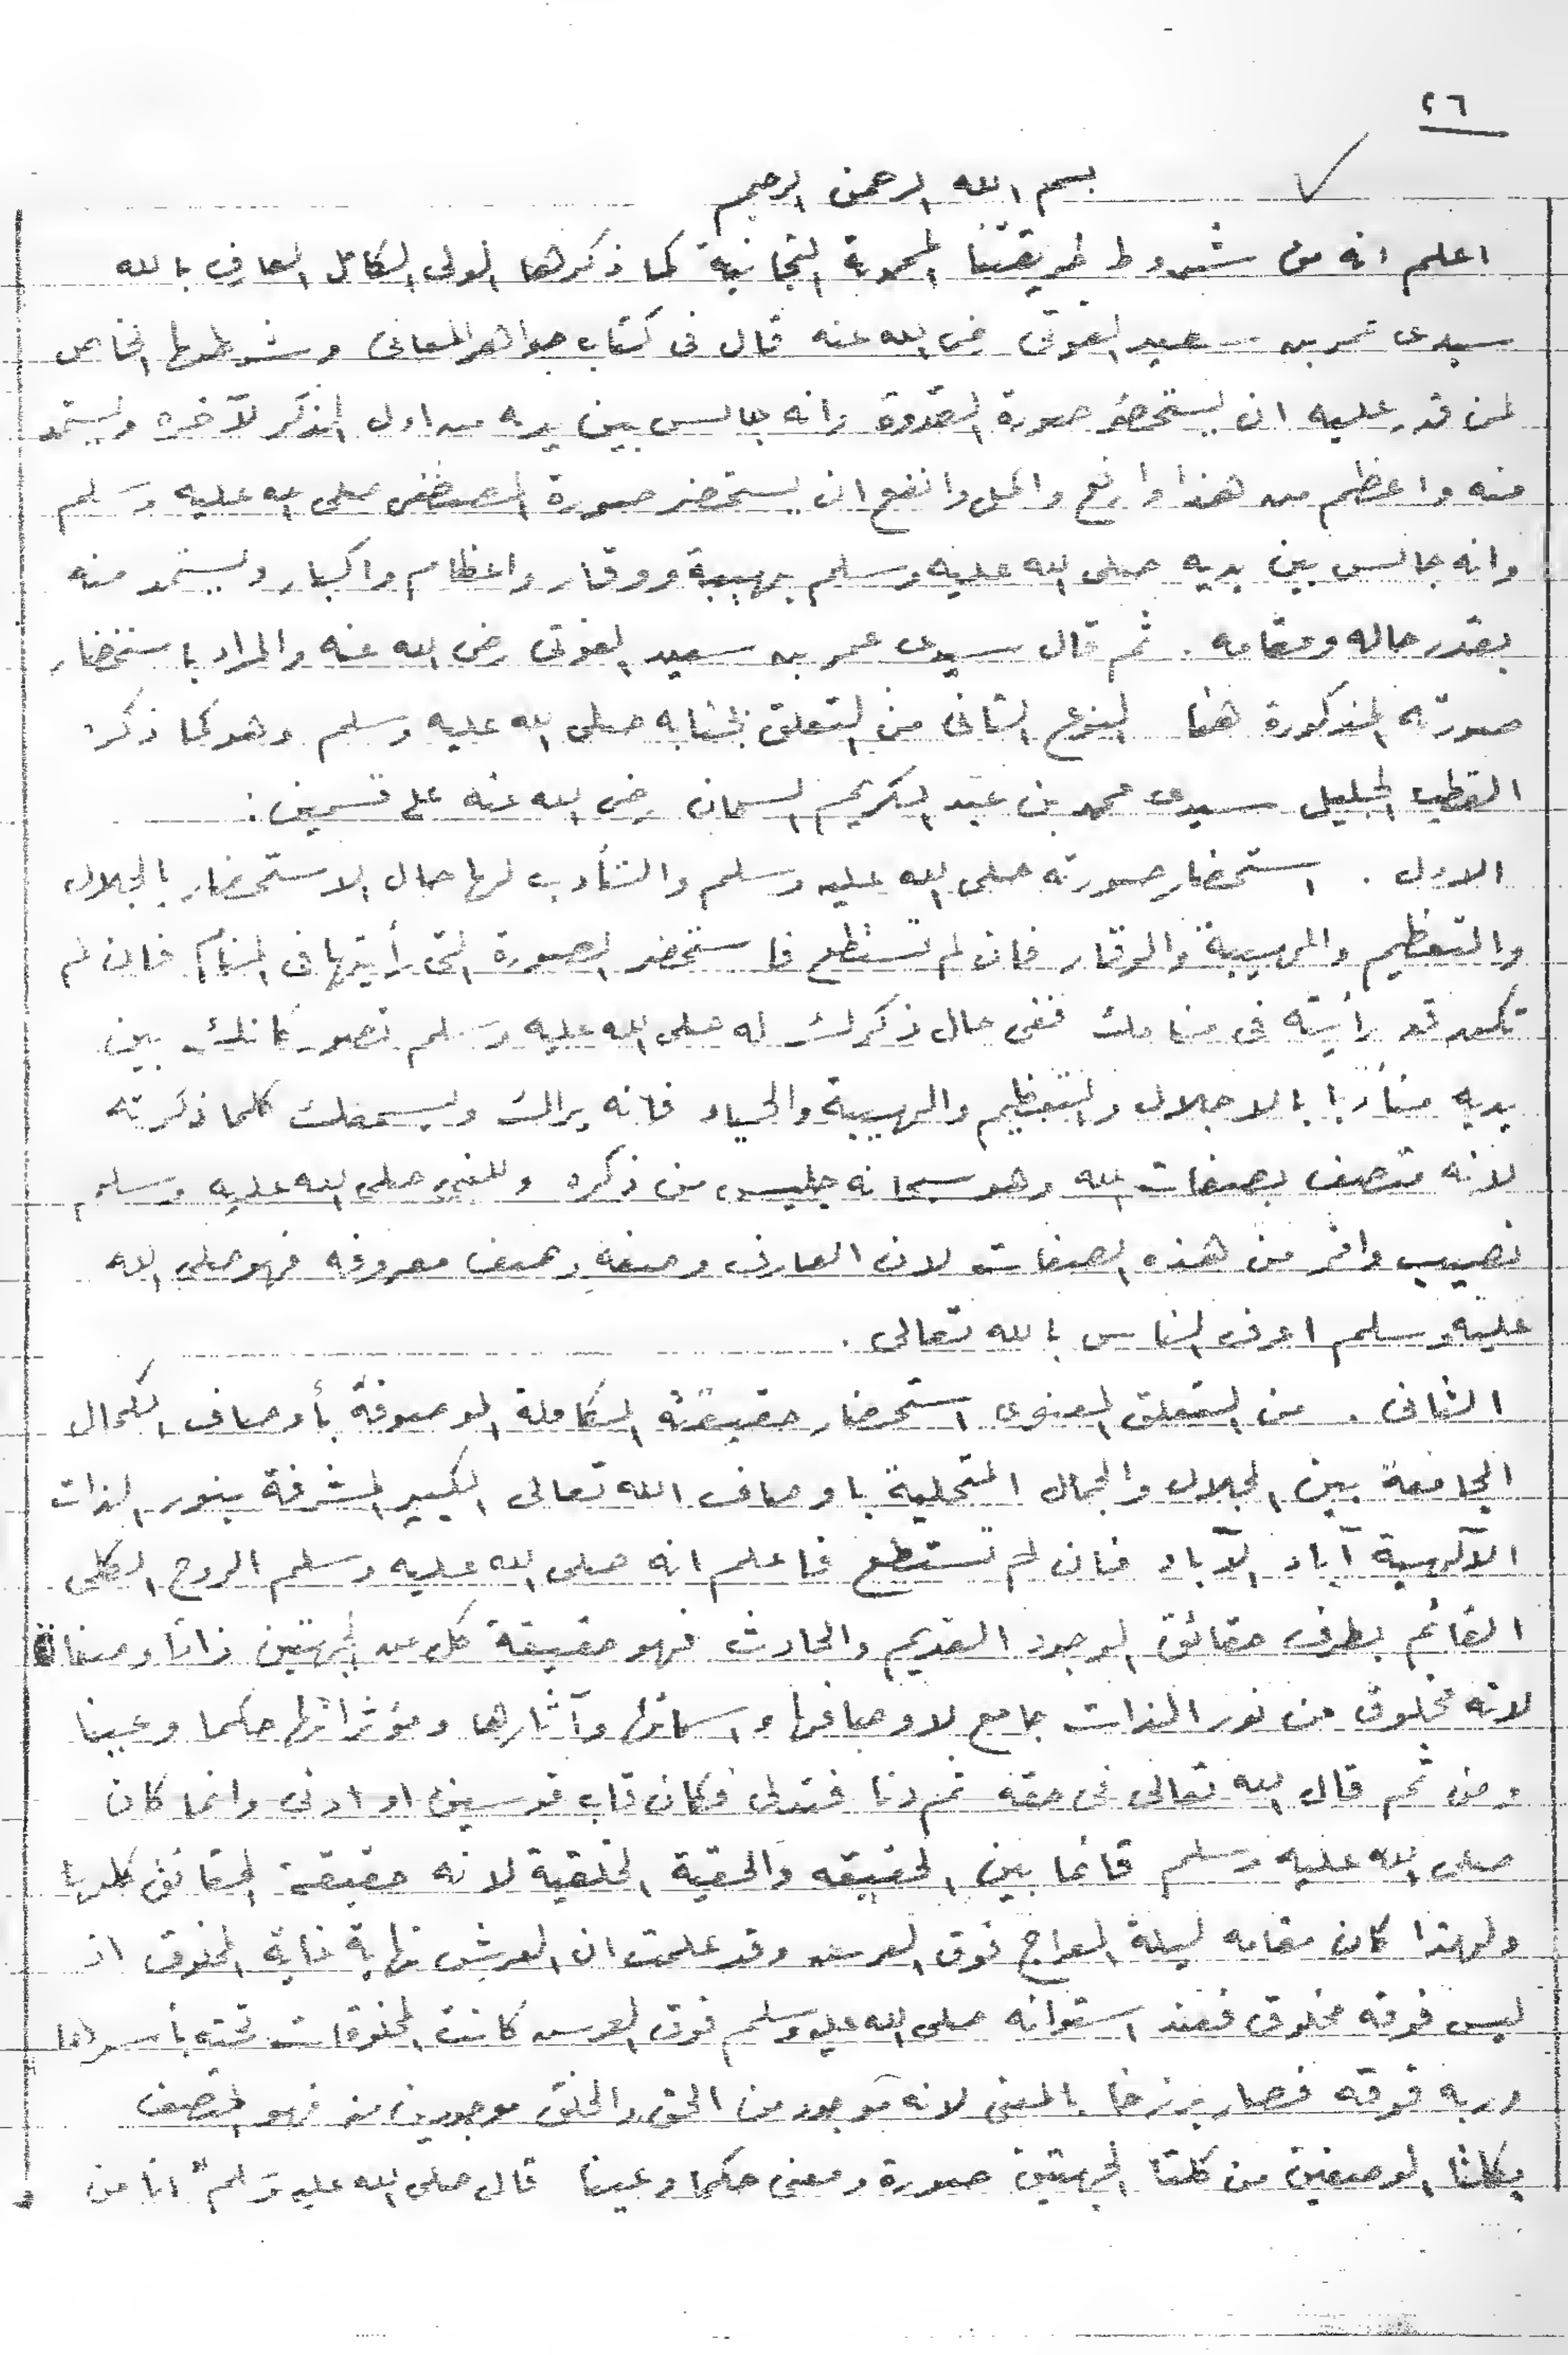 ٢٦
بسم الله الرحمن الرحيم
اعلم انه من شروط طريقتنا المحمدية التجانية كما ذكرها الولى الكامل العارف بالله
سيدى عمر بن سعيد الفوتى رضى الله عنه قال فى كتاب جواهر المعانى وشرطها الخاص
لمن قدر عليه ان يستحضر صورة القدوة وانه جالس بين يديه من اول الذكر لآخره ويستمد
منه واعظم من هذا وارفع واكمل وانفع ان يستحضر صورة المصطفى صلى الله عليه وسلم
وانه جالس بين يديه صلى الله عليه وسلم بهيبة ووقار واعظام واكبار ويستمد منه
بقدر حاله ومقامه . ثم قال سيدى عمر بن سعيد الفوتى رضى الله عنه والمراد باستحضار
صورته المذكورة هنا النوع الثانى من التعلق بجنابه صلى الله عليه وسلم وهو كما ذكر
القطب الجليل سيدى محمد بن عبد الكريم السمان رضى الله عنه على قسمين :
الاول . استحضار صورته صلى الله عليه وسلم والتأدب لها حال الاستحضار بالجلال
والتعظيم والهيبة والوقار فان لم تستطع فاستحضر الصورة التى رأيتها فى المنام فان لم
تكن قد رأيته فى منامك ففى حال ذكرك له صلى الله عليه وسلم تصور كانك بين
يديه متأدبا بالاجلال والتعظيم والهيبة والحياء فانه يراك ويسمعك كلما ذكرته
لانه متصف بصفات الله وهو سبحانه جليس من ذكره وللنبى صلى الله عليه وسلم
نصيب وافر من هذه الصفات لان العارف وصفه وصف معروفه فهو صلى الله
عليه وسلم اعرف الناس بالله تعالى .
الثانى . من التعلق المعنوى استحضار حقيقته الكاملة الموصوفة بأوصاف الكمال
الجامعة بين الجلال والجمال المتحلية باوصاف الله تعالى الكبير المشرفة بنور الذات
الآلهية آباد الآباد فان لم تستطع فاعلم انه صلى الله عليه وسلم الروح الكلى
القائم بطرف حقائق الوجود القديم والحادث فهو حقيقة كل من الجهتين ذاتا وصفاة
لانه مخلوق من نور الذات جامع لاوصافها واسمائها وآثارها ومؤثراتها حكما وعينا
ومن ثم قال الله تعالى فى حقه ثم دنا فتدلى فكان قاب قوسين او ادنى وانما كان
صلى الله عليه وسلم قائما بين الحقيقه والحقية الخلقية لانه حقيقة الحقائق كلها
ولهذا كان مقامه ليلة المعراج فوق العرش وقد علمت ان العرش نهاية غاية المخلوق اذ
ليس فوقه مخلوق فعند استوائه صلى الله عليه وسلم فوق العرش كانت المخلوقات تحته بأسرها
وربه فوقه فصار برزخا بالمعنى لانه موجود من الحق والخلق موجودين منه فهو المتصف
بكلتا الوصفين من كلتا الجهتين صورة ومعنى حكما وعينا قال صلى الله عليه وسلم " انا من